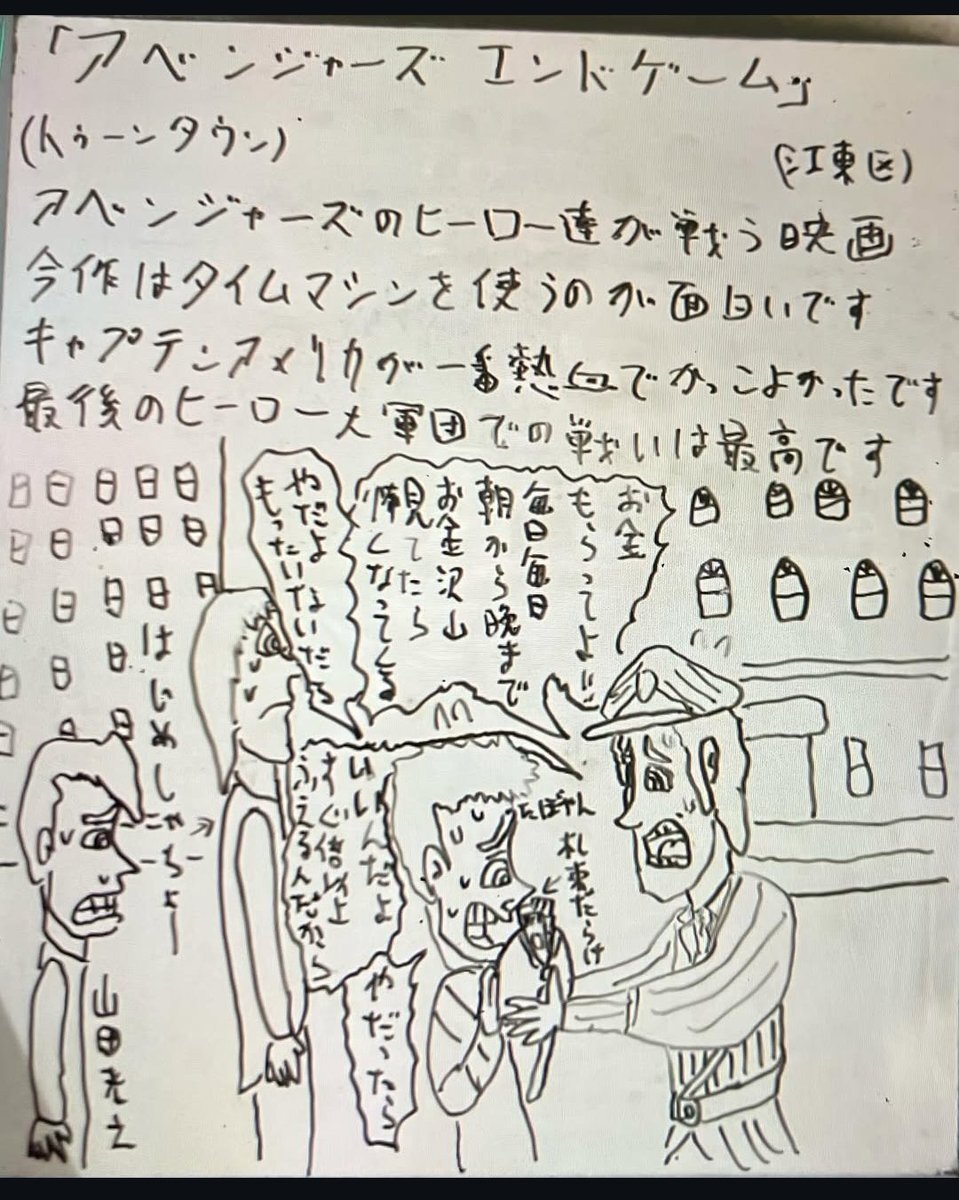 「アベンジャーズ エンドゲーム」
(トゥーンタウン)
(江東区)
アベンジャーズのヒーロー達が戦う映画
今作はタイムマシンを使うのが面白いです
キャプテンアメリカが一番熱血でかっこよかったです
最後のヒーロー大軍団での戦いは最高です
お金
もらってよ!!
毎日毎日
朝から晩まで
お金沢山
見てたら
怖くなってくる
やだよ
もったいないだろ
いいんだよ
すぐ倍以上
ふえるんだから
やだったら
たばやん
札束だらけ
はじめしゃちょー
山田光之